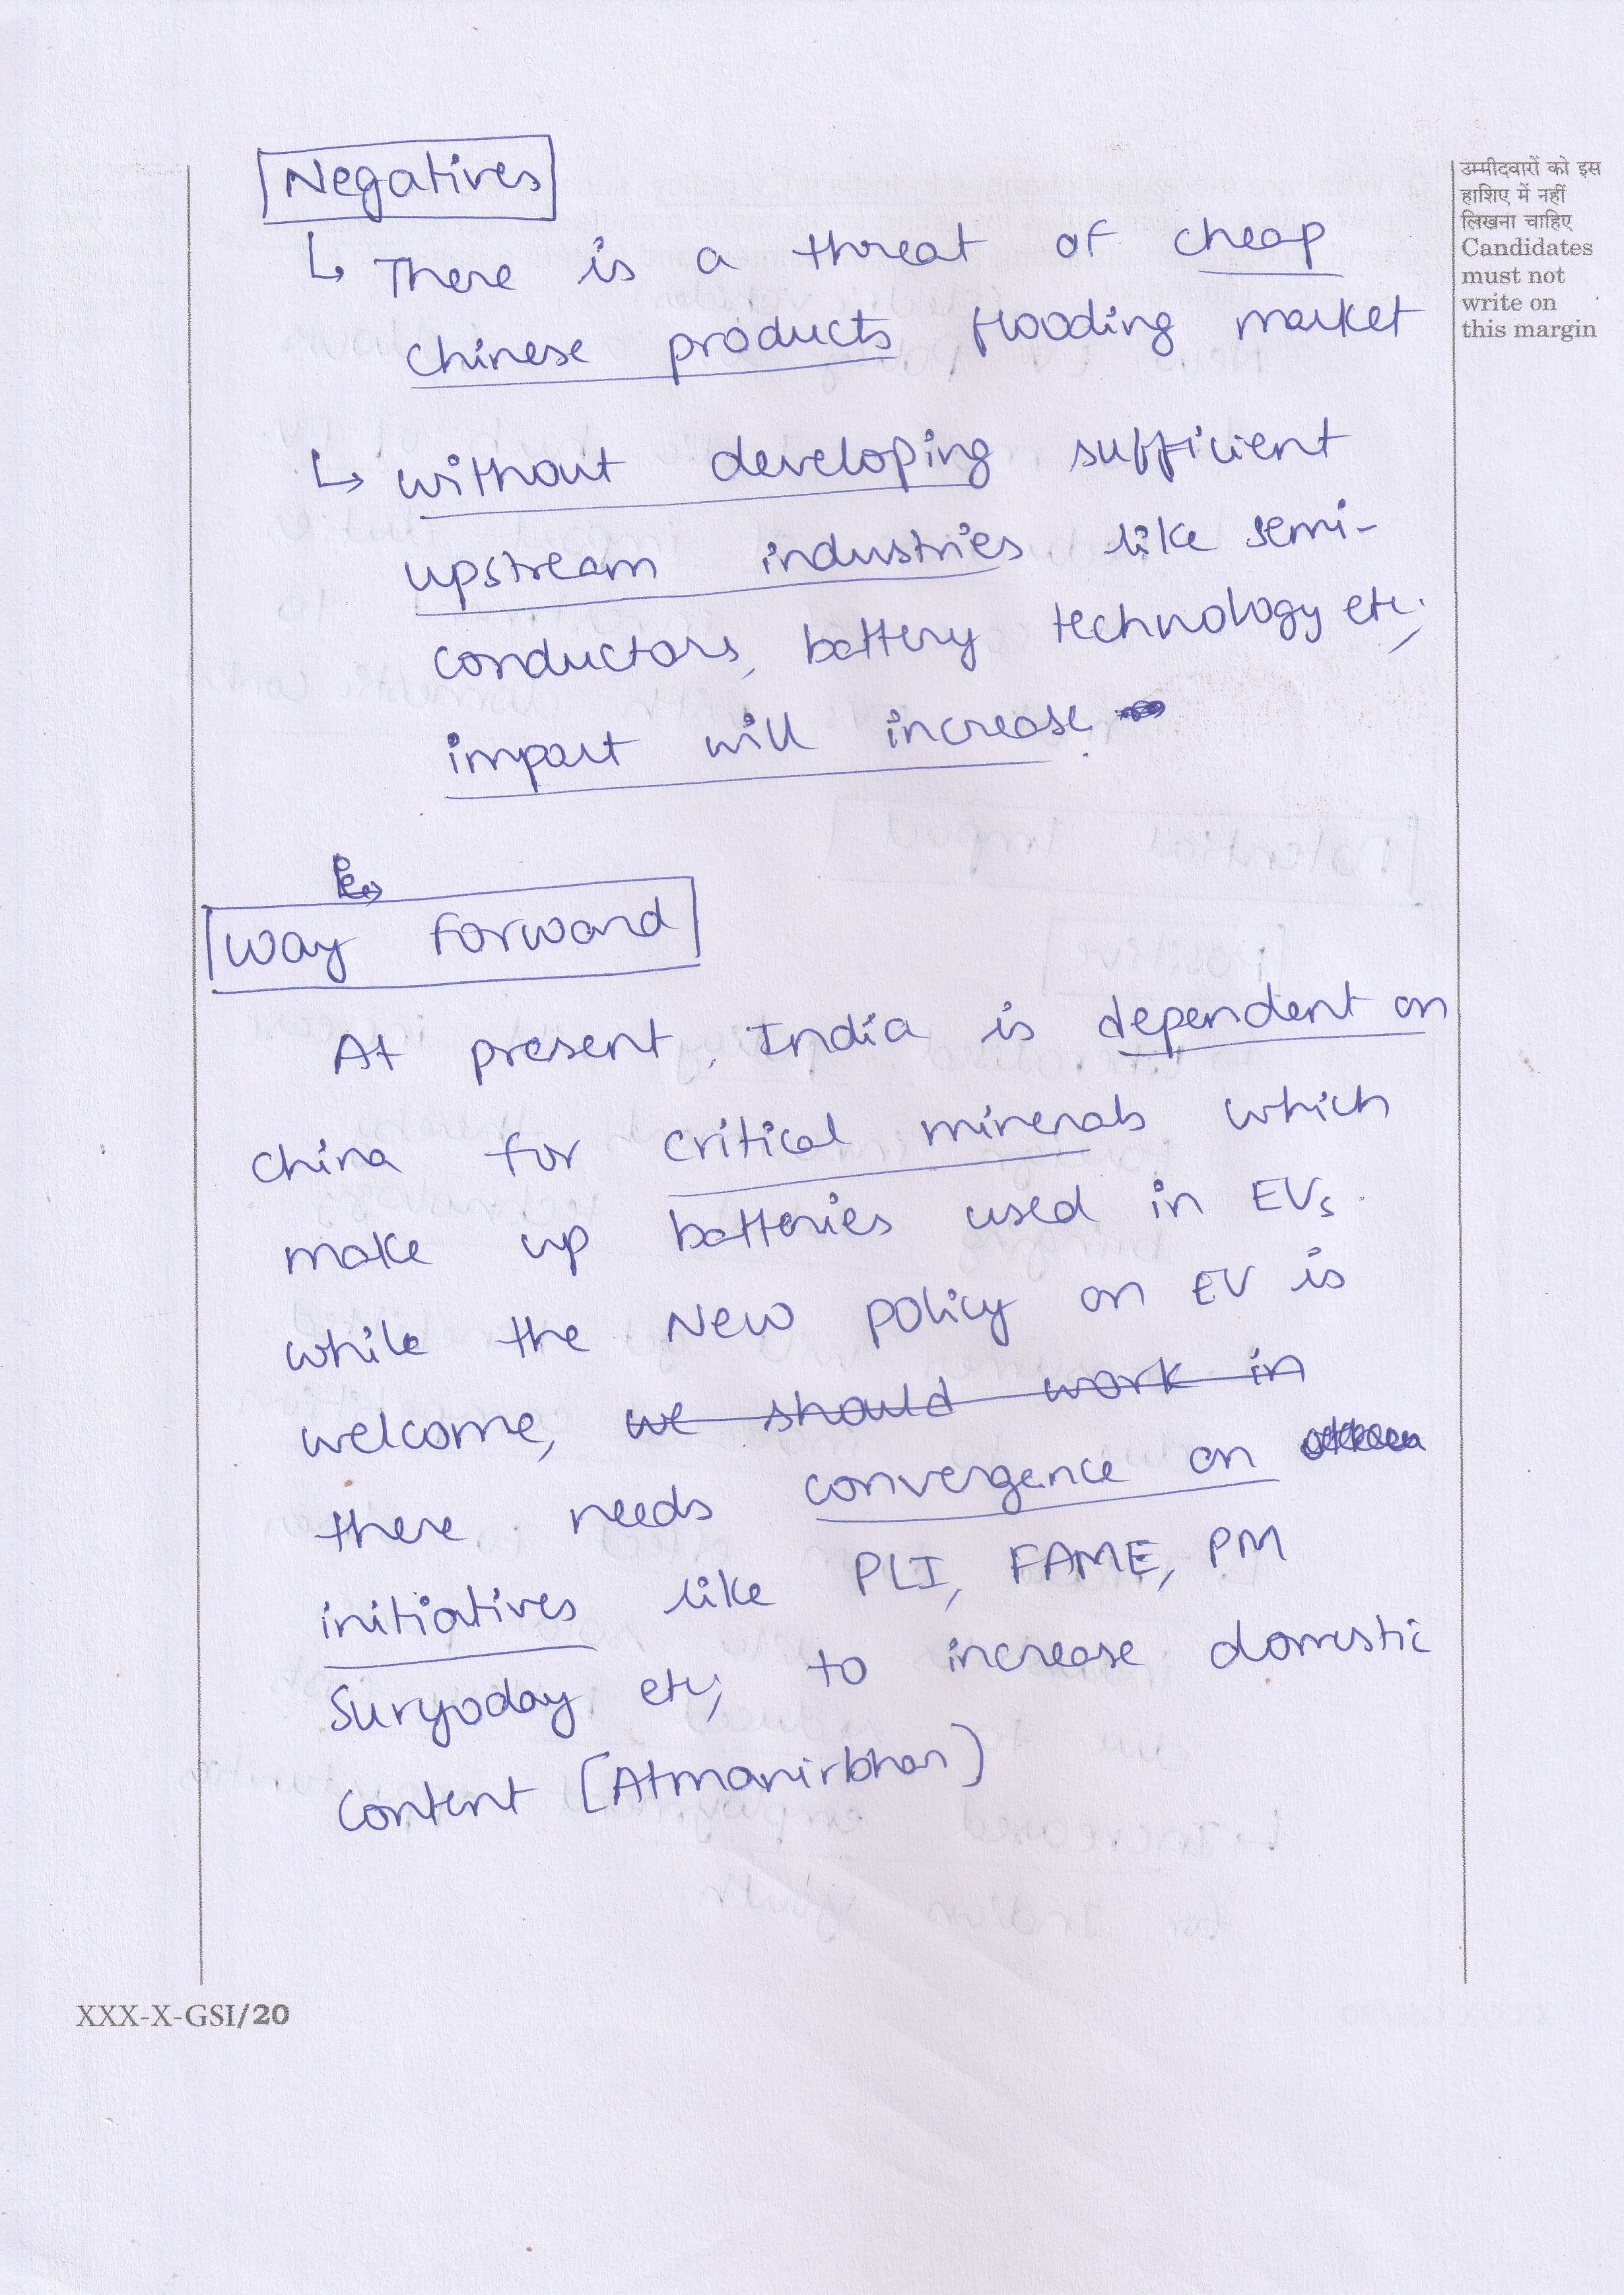 Negatives
↳ There is a threat of cheap
chinese products flooding market
↳ without developing sufficient
upstream industries like semi-
conductors, battery technology etc,
import will increase.
Way forward
At present, India is dependent on
china for critical minerals which
make up batteries used in EVs.
while the New policy on EV is
welcome, we should work in
there needs convergence on
initiatives like PLI, FAME, PM
Suryoday etc, to increase domestic
content (Atmanirbhar)
उम्मीदवारों को इस
हाशिए में नहीं
लिखना चाहिए
Candidates
must not
write on
this margin
XXX-X-GSI/20